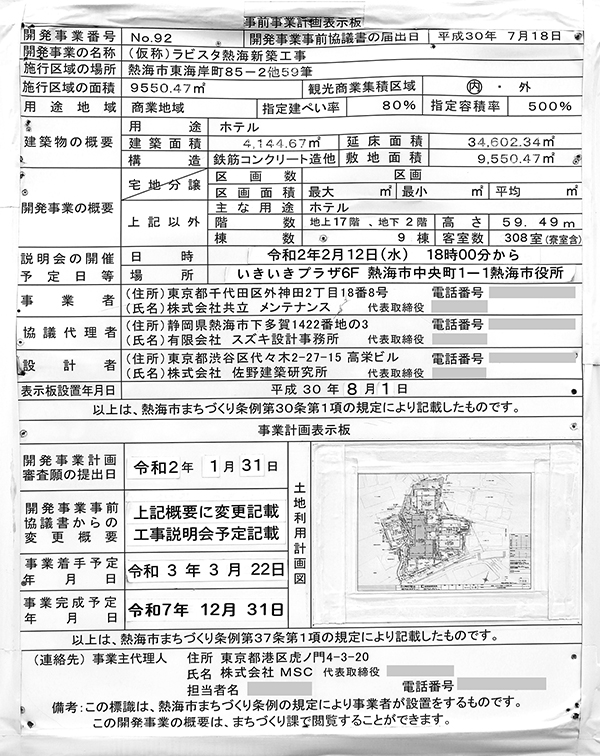 事前事業計画表示板
開発事業番号 No.92 開発事業事前協議書の届出日 平成30年 7月18日
開発事業の名称 (仮称)ラビスタ熱海新築工事
施行区域の場所 熱海市東海岸町85-2他59筆
施行区域の面積 9550.47㎡ 観光商業集積区域 内・外
用途地域 商業地域 指定建ぺい率 80% 指定容積率 500%
建築物の概要
用途 ホテル
建築面積 4,144.67㎡ 延床面積 34,602.34㎡
構造 鉄筋コンクリート造他 敷地面積 9,550.47㎡
開発事業の概要
宅地分譲 区画数 区画
区画面積 最大 ㎡ 最小 ㎡ 平均 ㎡
上記以外 主な用途 ホテル
階数 地上17階、地下2階 高さ 59.49m
棟数 9棟 客室数 308室(寮室含)
説明会の開催予定日等
日時 令和2年2月12日(水) 18時00分から
場所 いきいきプラザ6F 熱海市中央町1ー1熱海市役所
事業者 (住所)東京都千代田区外神田2丁目18番8号 電話番号
(氏名)株式会社共立 メンテナンス 代表取締役
協議代理者 (住所)静岡県熱海市下多賀1422番地の3 電話番号
(氏名)有限会社 スズキ設計事務所 代表取締役
設計者 (住所)東京都渋谷区代々木2-27-15 高栄ビル 電話番号
(氏名)株式会社 佐野建築研究所 代表取締役
表示板設置年月日 平成30年8月1日
以上は、熱海市まちづくり条例第30条第1項の規定により記載したものです。
事業計画表示板
開発事業計画
審査願の提出日 令和2年 1月31日
開発事業事前
協議書からの
変更概要
上記概要に変更記載
工事説明会予定記載
事業着手予定
年月日 令和3年3月22日
事業完成予定
年月日 令和7年12月31日
土地利用計画図
以上は、熱海市まちづくり条例第37条第1項の規定により記載したものです。
(連絡先)事業主代理人 住所 東京都港区虎ノ門4-3-20
氏名 株式会社MSC 代表取締役
担当者名 電話番号
備考:この標識は、熱海市まちづくり条例の規定により事業者が設置をするものです。
この開発事業の概要は、まちづくり課で閲覧することができます。